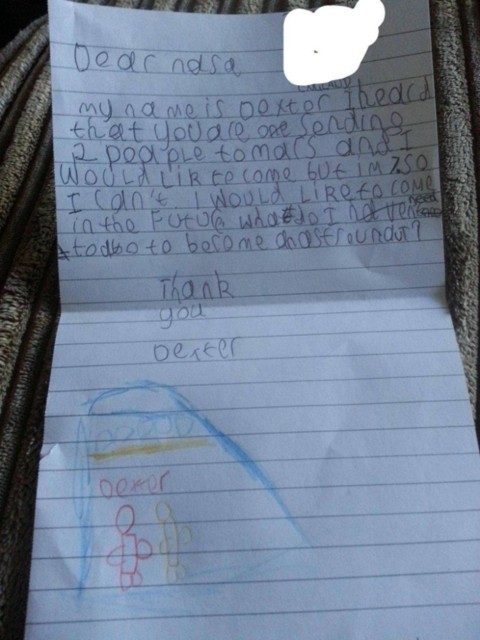 Dear nasa
my name is Dexter I heard
that you are sending
2 people to mars and I
would lik to come but im 7 so
I can't I would like to come
in the future what do I need
to do to become an astrounaut?
Thank
you
Dexter
Dexter